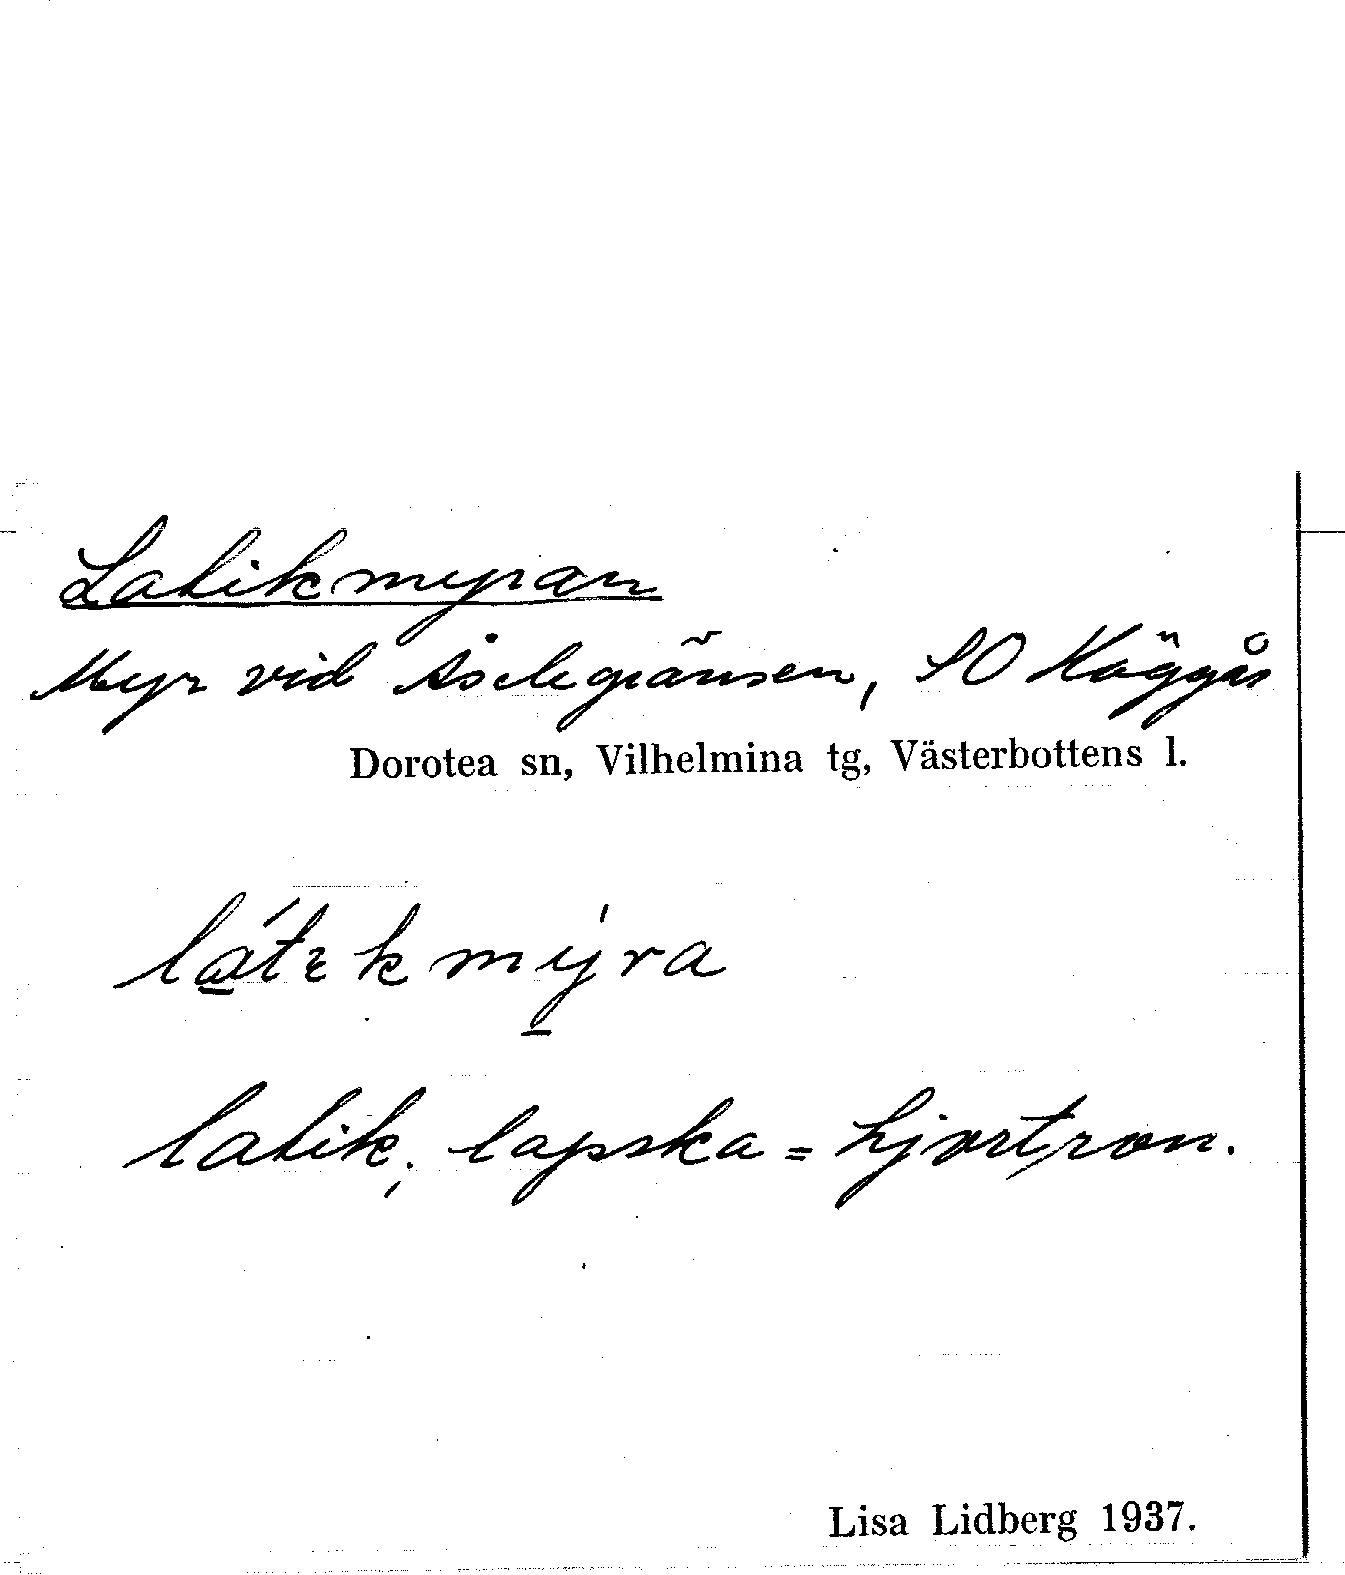 Latikmyran
Myr vid Åselegränsen, SO Höggås
Dorotea sn, Vilhelmina tg, Västerbottens l.
látɛkmýra
latik; lapska = hjortron.
Lisa Lidberg 1937.